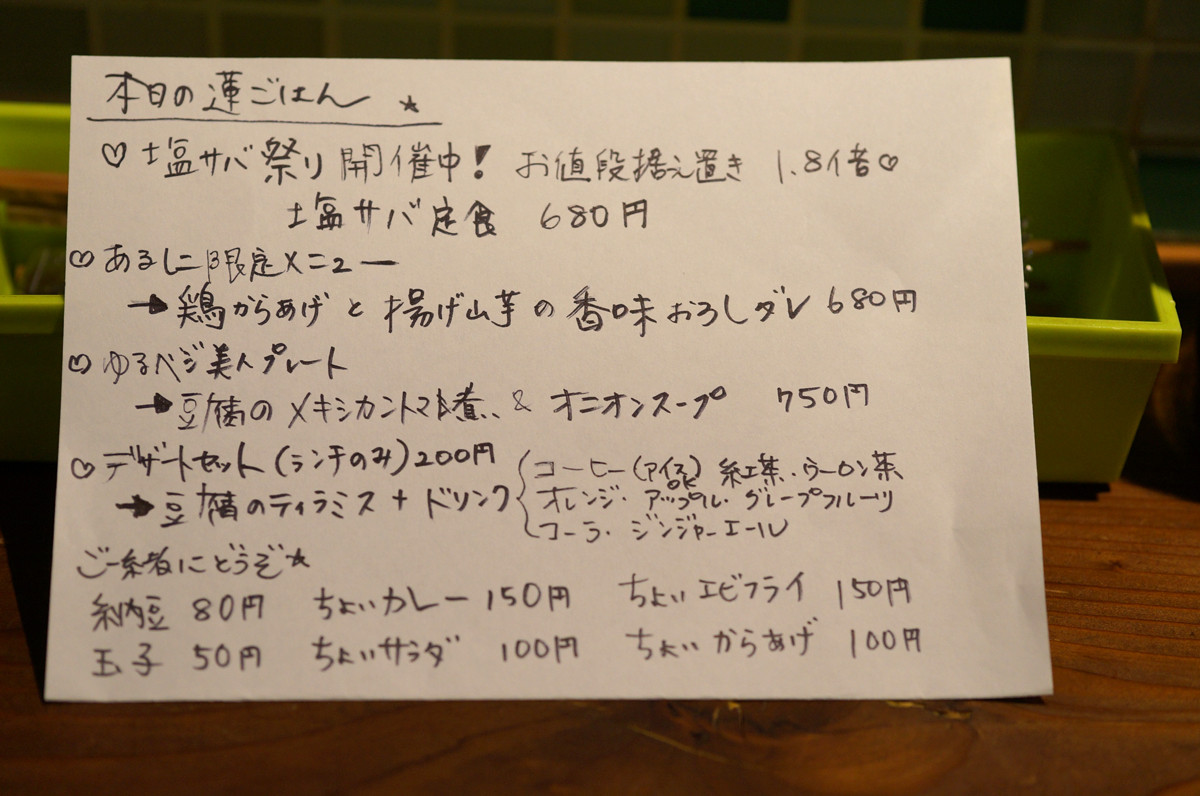 本日の蓮ごはん ☆
♡ 塩サバ祭り開催中! お値段据え置き 1.8倍♡
塩サバ定食 680円
♡ あるしに限定メニュー
→ 鶏からあげと揚げ山芋の香味おろしダレ 680円
♡ ゆるベジ美人プレート
→ 豆腐のメキシカントマト煮 & オニオンスープ 750円
♡ デザートセット(ランチのみ)200円
→ 豆腐のティラミス + ドリンク
コーヒー(アイスOK) 紅茶・ウーロン茶
オレンジ・アップル・グレープフルーツ
コーラ・ジンジャーエール
ご一緒にどうぞ☆
納豆 80円 ちょいカレー 150円 ちょいエビフライ 150円
玉子 50円 ちょいサラダ 100円 ちょいからあげ 100円